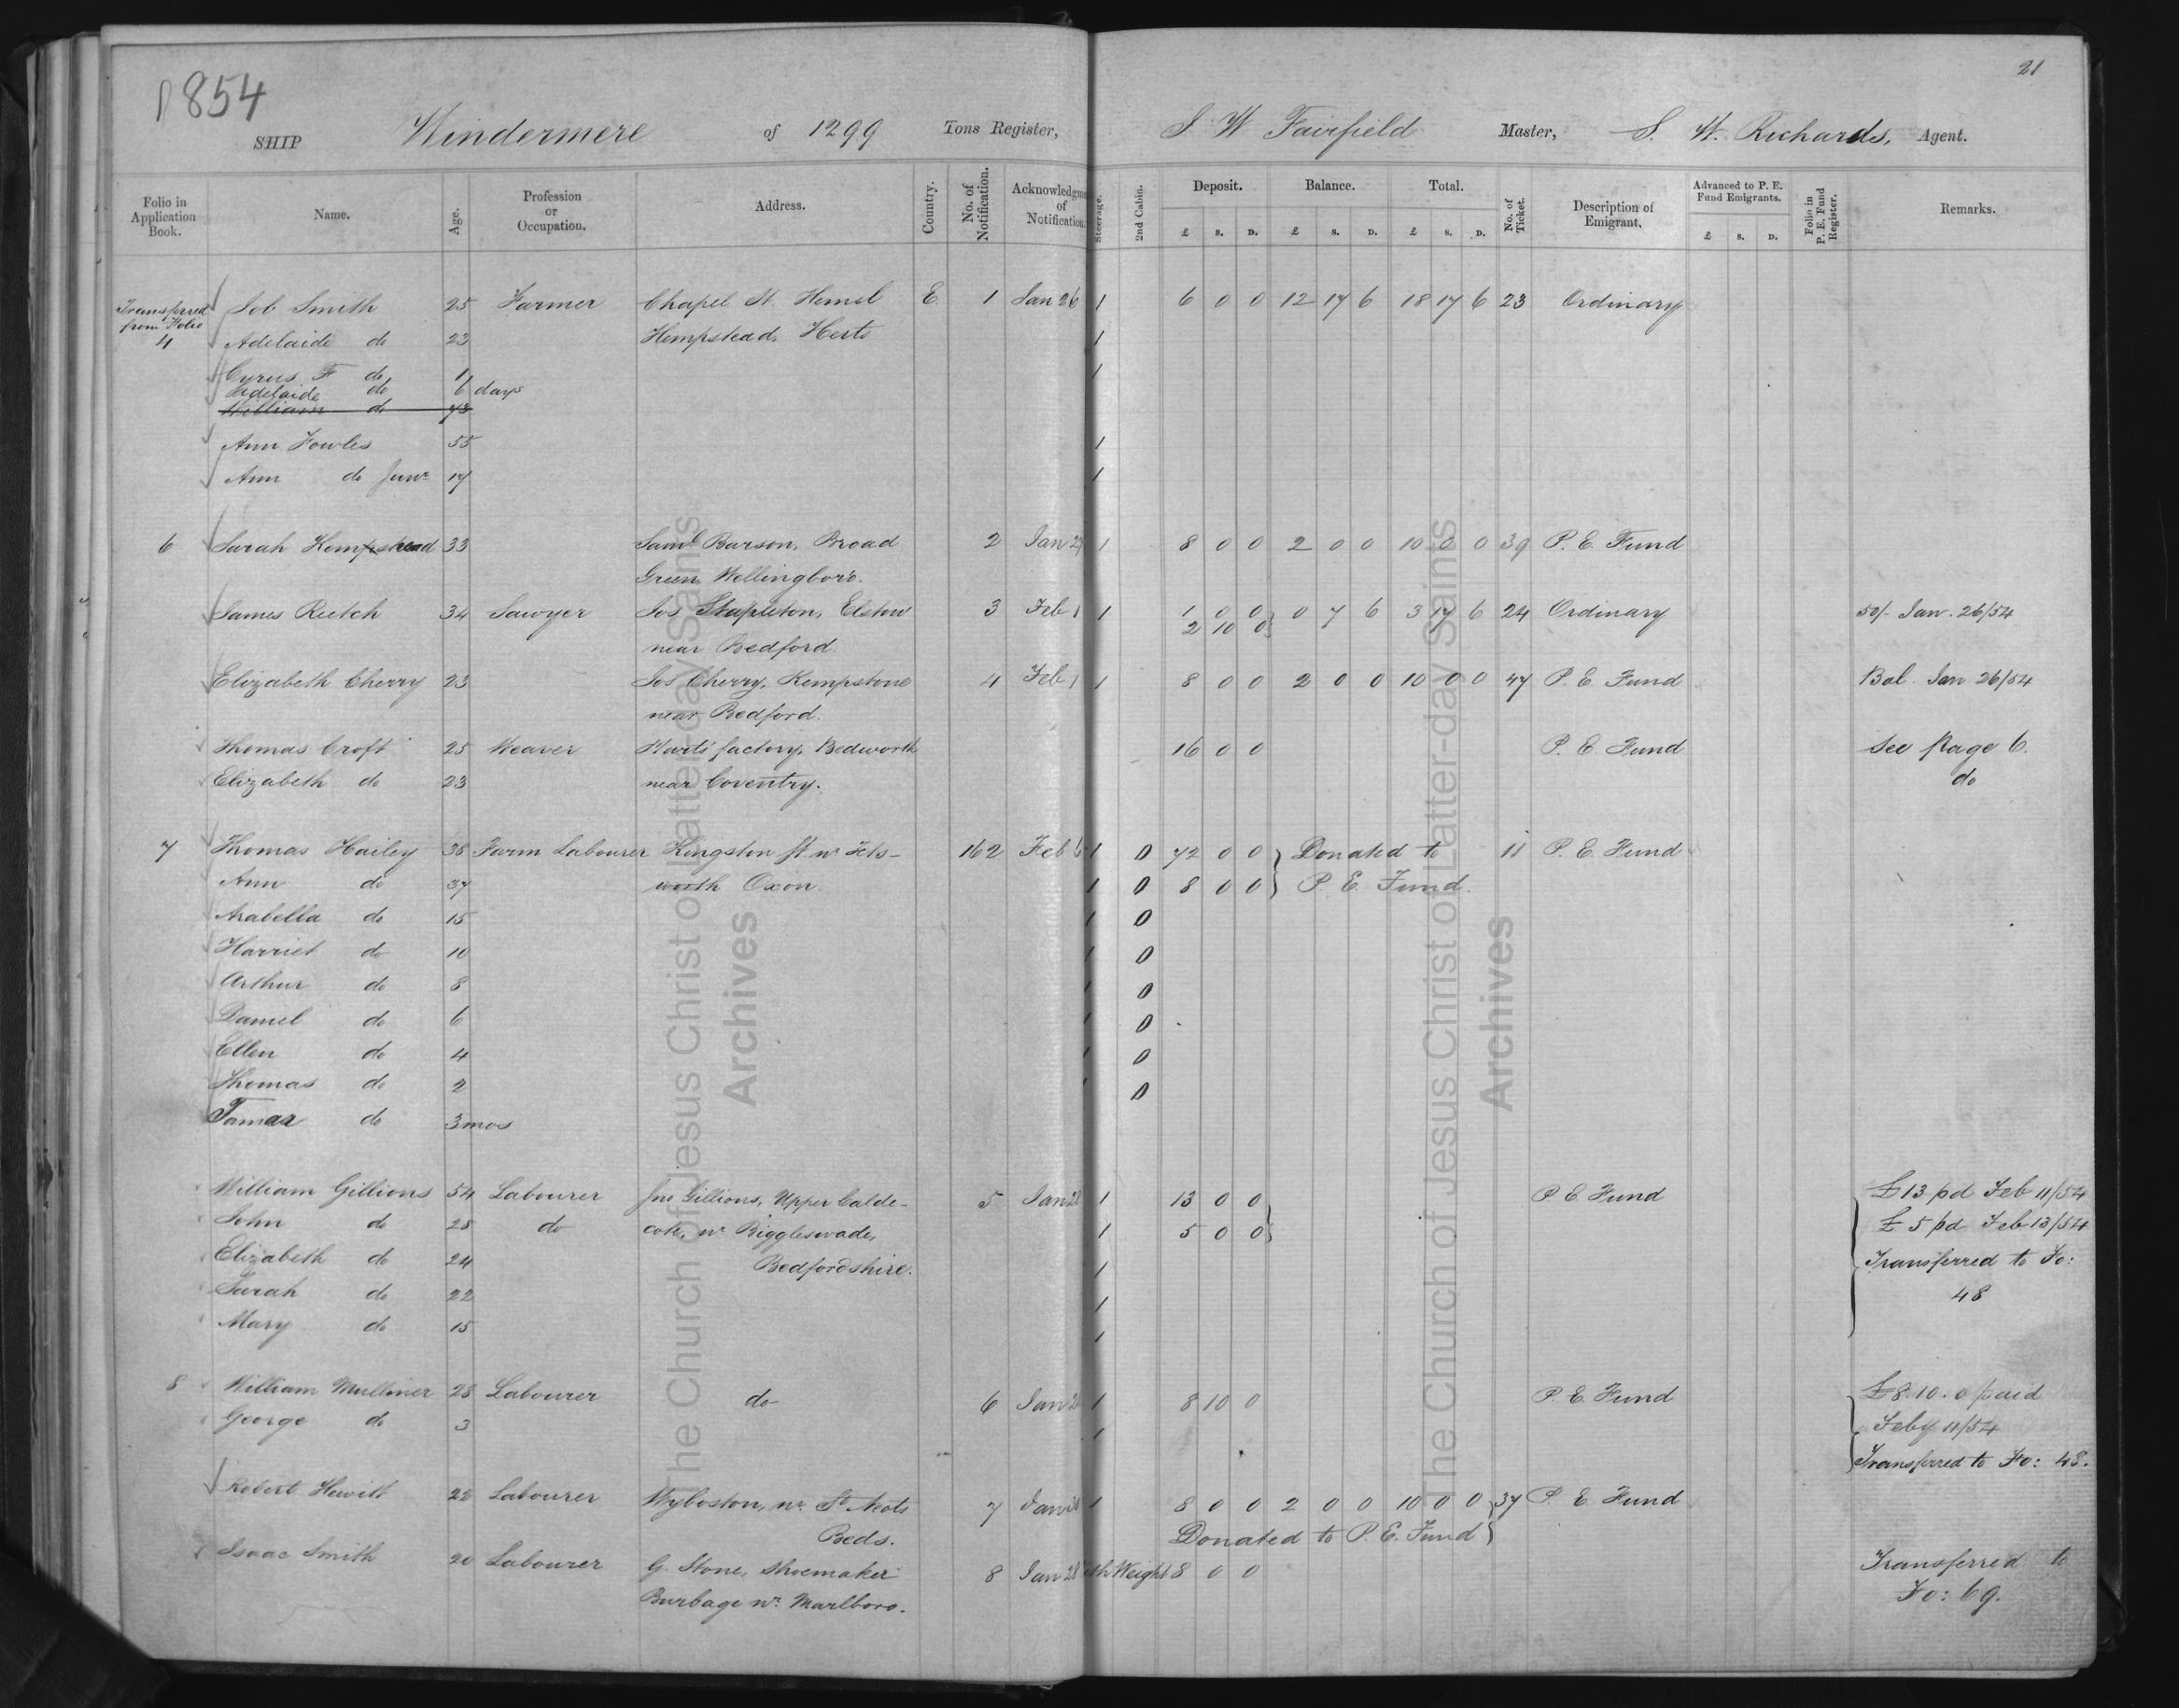 1854
21
SHIP Windermere of 1299 Tons Register, J W Fairfield Master, S. W. Richards, Agent.
Folio in Application Book. Name. Age. Profession or Occupation. Address. Country. No. of Notification. Acknowledgme of Notification. Steerage. 2nd Cabin. Deposit. £ s. D. Balance. £ s. D. Total. £ s. D. No. of Ticket. Description of Emigrant. Advanced to P. E. Fund Emigrants. £ s. D. Folio in P. E. Fund Register. Remarks.
Transferred from Folio 4 Job Smith 25 Farmer Chapel St. Hemel E 1 Jan 26 1 6 0 0 12 17 6 18 17 6 23 Ordinary
Adelaide do 23 Hempstead, Herts 1
Cyrus F do 1 1
Adelaide do 6 days
William do 73
Ann Fowles 55 1
Ann do Junr 17 1
6 Sarah Hempshead 33 Saml Barson, Broad 2 Jan 1 8 0 0 2 0 0 10 0 0 39 P. E. Fund
Green, Wellingboro'.
James Reetch 34 Sawyer Jos Stapleton, Elstow 3 Feb 1 1 1 0 0 } 0 7 6 3 17 6 24 Ordinary 50/- Jan. 26/54
near Bedford. 2 10 0 }
Elizabeth Cherry 23 Jos Cherry, Kempstone 4 Feb 1 1 8 0 0 2 0 0 10 0 0 47 P. E. Fund Bal. Jan 26/54
near Bedford.
Thomas Croft 25 Weaver Harts' factory, Bedworth 16 0 0 P. E. Fund See page 6.
Elizabeth do 23 near Coventry. do
7 Thomas Hailey 38 Farm Labourer Kingston St. nr Tets- 162 Feb 6 1 0 72 0 0 } Donated to 11 P. E. Fund
Ann do 37 worth Oxon. 1 0 8 0 0 } P. E. Fund.
Arabella do 15 1 0
Harriet do 10 1 0
Arthur do 8 1 0
Daniel do 6 1 0
Ellen do 4 1 0
Thomas do 2 1 0
Tamar do 3 mos
William Gillions 54 Labourer Jno Gillions, Upper Calde- 5 Jan 28 1 13 0 0 } P. E. Fund £13 pd Feb 11/54
John do 28 do cote, nr Biggleswade, 1 5 0 0 } £5 pd Feb 13/54
Elizabeth do 24 Bedfordshire. 1 Transferred to Fo:
Sarah do 22 1 48
Mary do 15 1
8 William Mulliner 28 Labourer do 6 Jan 1 8 10 0 P. E. Fund £8.10.0 paid
George do 3 1 Feby 11/54
Transferred to Fo: 48.
Robert Hewitt 22 Labourer Wyboston, nr. St Neots 7 Jan 1 8 0 0 2 0 0 10 0 0 } 37 P. E. Fund
Beds. Donated to P. E. Fund }
Isaac Smith 20 Labourer G. Stone, Shoemaker 8 Jan 28 Weight 8 0 0 Transferred to
Burbage nr. Marlboro. Fo: 69.
The Church of Jesus Christ of Latter-day Saints
Archives
The Church of Jesus Christ of Latter-day Saints
Archives